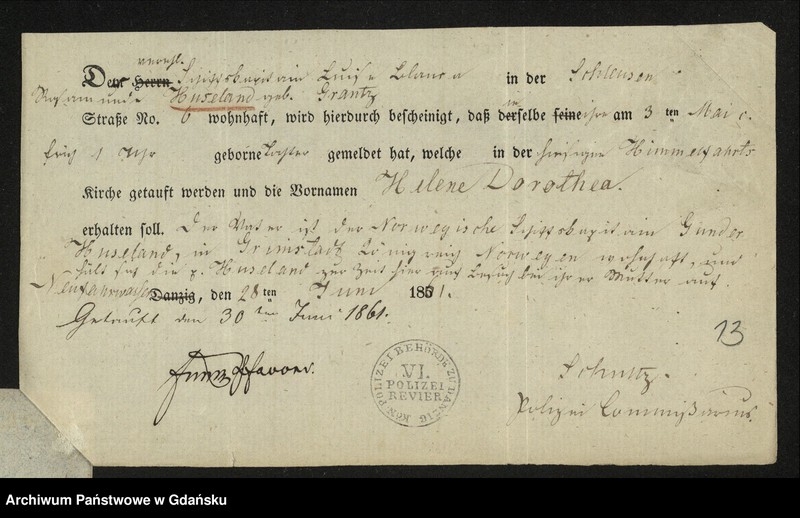 verehl.
Der Herrn Schiffskapitain Luise Blanca in der Schleusen
Rosamunde Huseland geb. Grantz
Straße No. 6 wohnhaft, wird hierdurch bescheinigt, daß derselbe seine ihre am 3 ten Mai c.
früh 1 Uhr geborne Tochter gemeldet hat, welche in der hiesigen Himmelfahrts
Kirche getauft werden und die Vornamen Helene Dorothea.
erhalten soll. Der Vater ist der Norwegische Schiffskapitain Gunder
Huseland, in Grimstadt Königreich Norwegen wohnhaft, und
hält sich die p. Huseland zur Zeit hier zum Besuch bei ihrer Mutter auf.
Neufahrwasser Danzig, den 28 ten Juni 1861.
Getauft den 30 ten Juni 1861.
13
Pfarrer.
KÖN. POLIZEI BEHÖRDE ZU DANZIG
VI.
POLIZEI
REVIER
Schultz.
Polizei Commißarius.
Archiwum Państwowe w Gdańsku